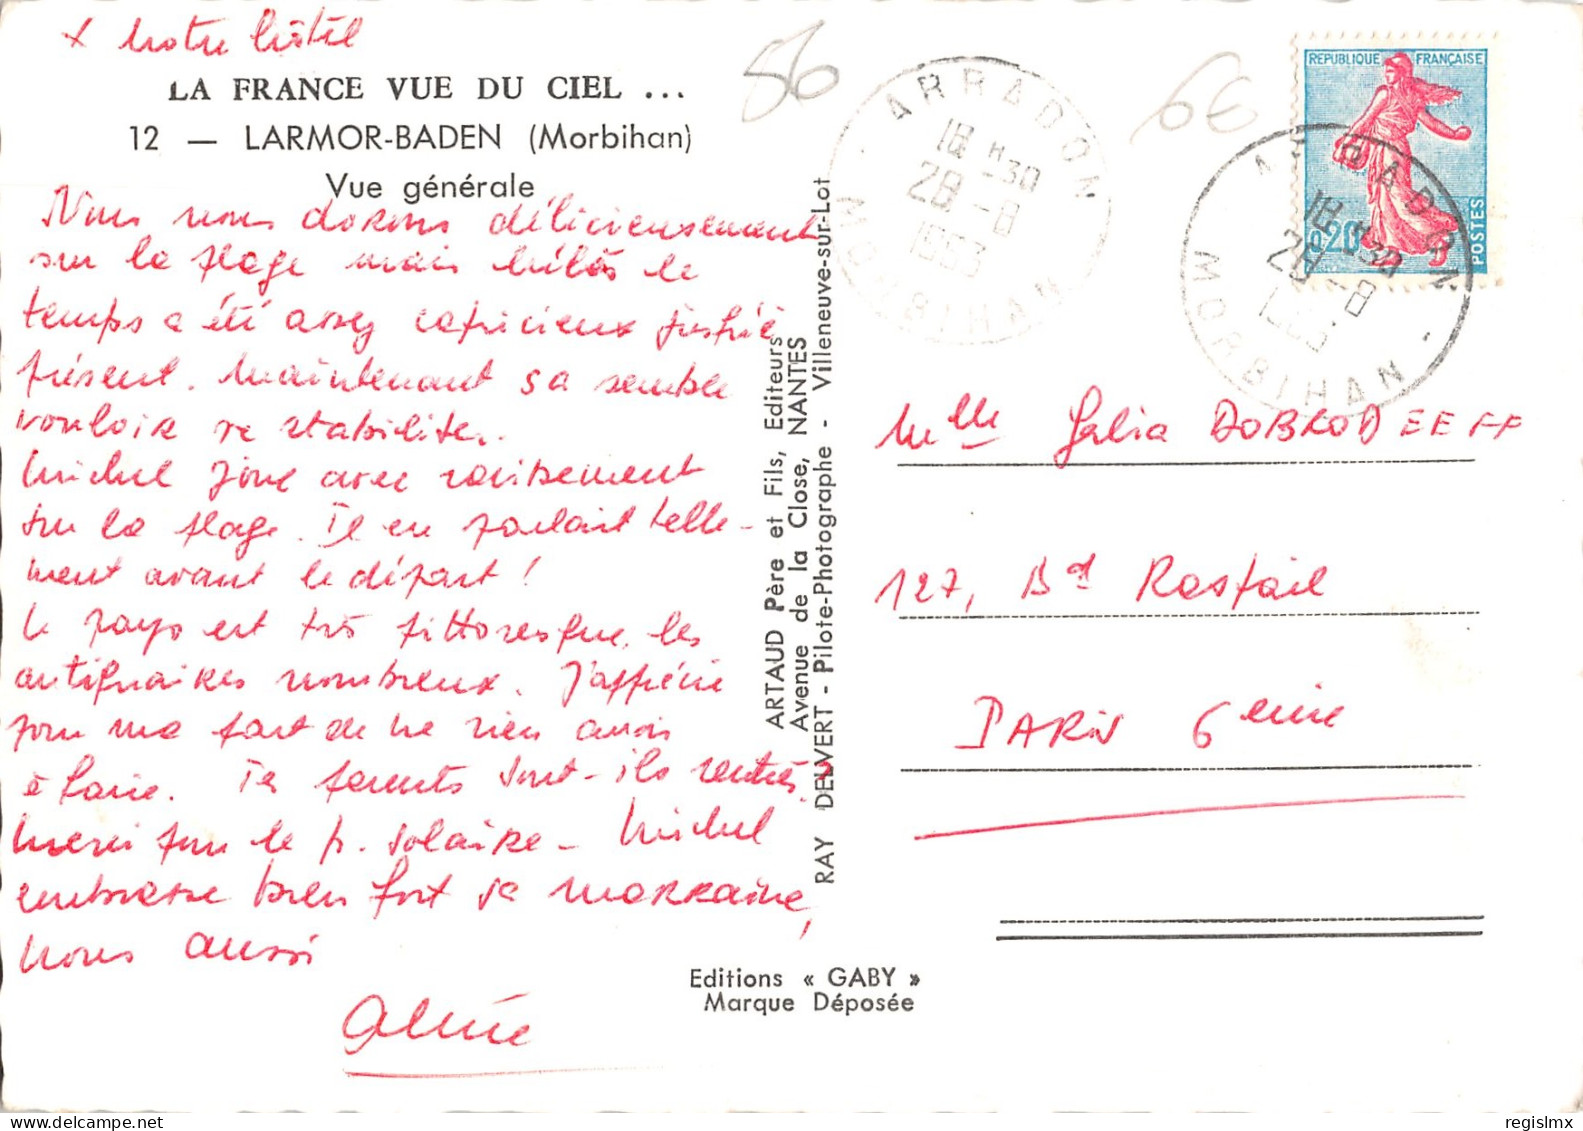 x Notre hôtel
LA FRANCE VUE DU CIEL ...
12 — LARMOR-BADEN (Morbihan)
Vue générale
Nous nous dorons délicieusement
sur la plage mais hélas le
temps a été assez capricieux jusqu'à
présent. Maintenant ça semble
vouloir se stabiliser.
Michel joue avec ravissement
sur la plage. Il en parlait telle-
ment avant le départ !
Le pays est très pittoresque, les
antiquaires nombreux. J'apprécie
pour ma part de ne rien avoir
à faire. Tes parents sont-ils rentrés ?
Merci pour le p. solaire - Michel
embrasse bien fort sa marraine,
nous aussi
56
6€
ARRADON
18H30
28-8
1963
MORBIHAN
REPUBLIQUE FRANÇAISE
0,20
POSTES
ARRADON
18H30
28-8
MORBIHAN
ARTAUD Père et Fils, Editeurs
Avenue de la Close, NANTES
RAY DELVERT - Pilote-Photographe - Villeneuve-sur-Lot
Mlle Galia DOBRODEEFF
127, Bd Raspail
PARIS 6eme
Editions « GABY »
Marque Déposée
regislmx